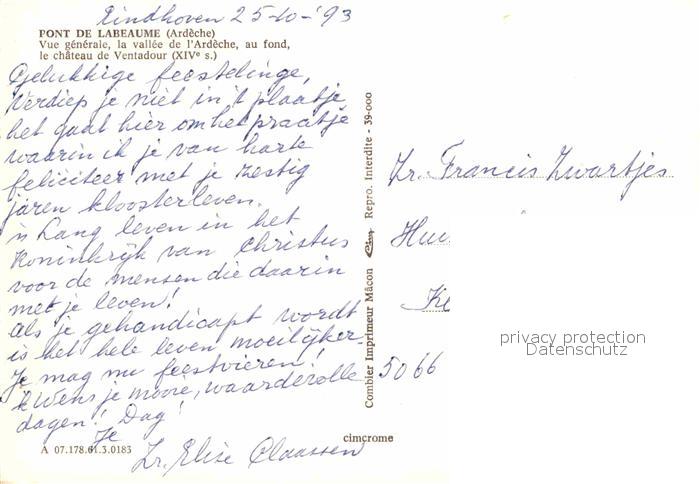 Eindhoven 25-10-'93
PONT DE LABEAUME (Ardèche)
Vue générale, la vallée de l'Ardèche, au fond,
le château de Ventadour (XIVe s.)
Gelukkige feestelinge,
Verdiep je niet in 't plaatje
het gaat hier om het praatje
waarin ik je van harte
feliciteer met je zestig
jaren kloosterleven.
'n Lang leven in het
Koninkrijk van Christus
voor de mensen die daarin
met je leven!
Als je gehandicapt wordt
is het hele leven moeilijker.
Je mag nu feestvieren!
'k Wens je mooie, waardevolle
dagen! Dag!
Je
Zr. Elise Claassen
A 07.178.61.3.0183
cimcrome
Combier Imprimeur Mâcon Cim Repro. Interdite - 39-000
Zr. Francis Zwartjes
5066
privacy protection
Datenschutz